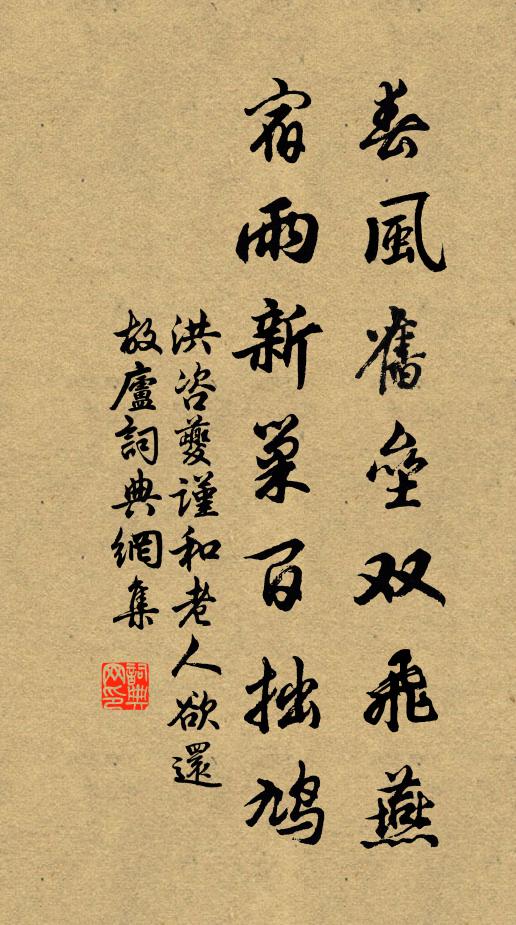 春風舊壘双飛燕
宿雨新巢百拙鳩
洪咨夔謹和老人欲還
故廬詞典網集
詞典網印